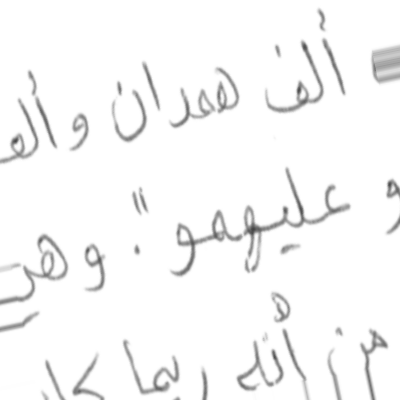 ألف همدان وألف
و عليهمو". وهي
من أنه ربما كان